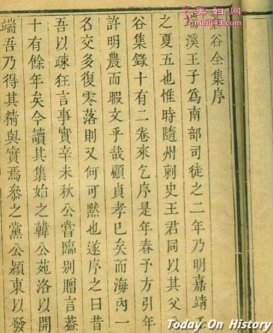 谷全集序
溪王子為南部司徒之二年乃明嘉靖
之夏五也惟時隨州刺史王君同以其父
谷集錄十有二卷來乞序是年春予方引年
許明農而暇文乎哉顧貞孝已矣而海內一
名交多復零落則又何可默也遂序之曰昔
吾以疎狂言事實辛未秋公嘗臨別贈言蓋
十有餘年矣今讀其集始之韓公苑洛以開
端吾乃得其精與實焉參之黨公潁東以發
Today On History